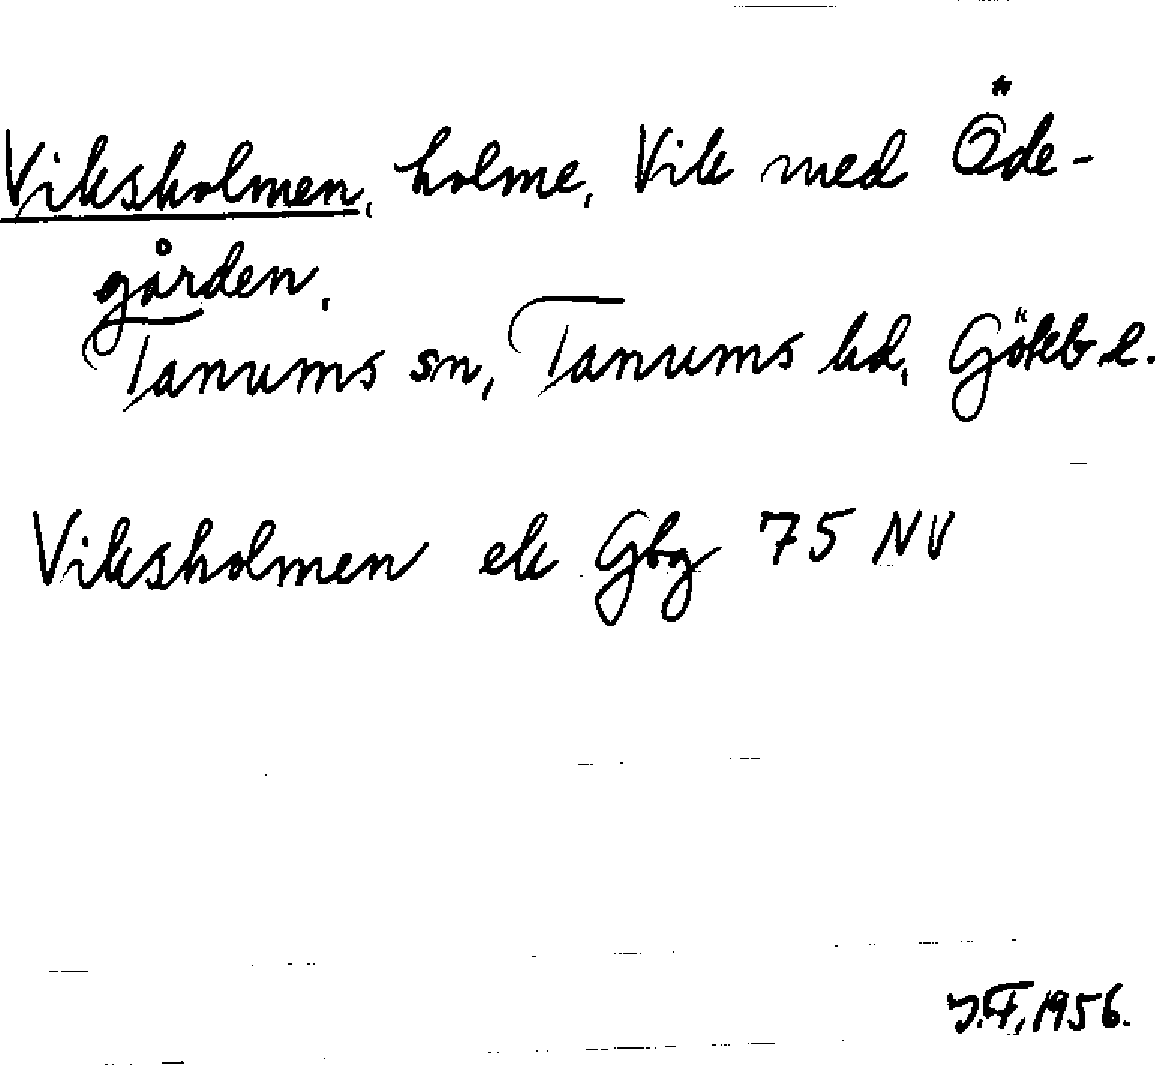 Viksholmen, holme, Vik med Öde-
gården.
Tanums sn, Tanums hd, Gökb l.
Viksholmen ek Gbg 75 NV
J.F, 1956.